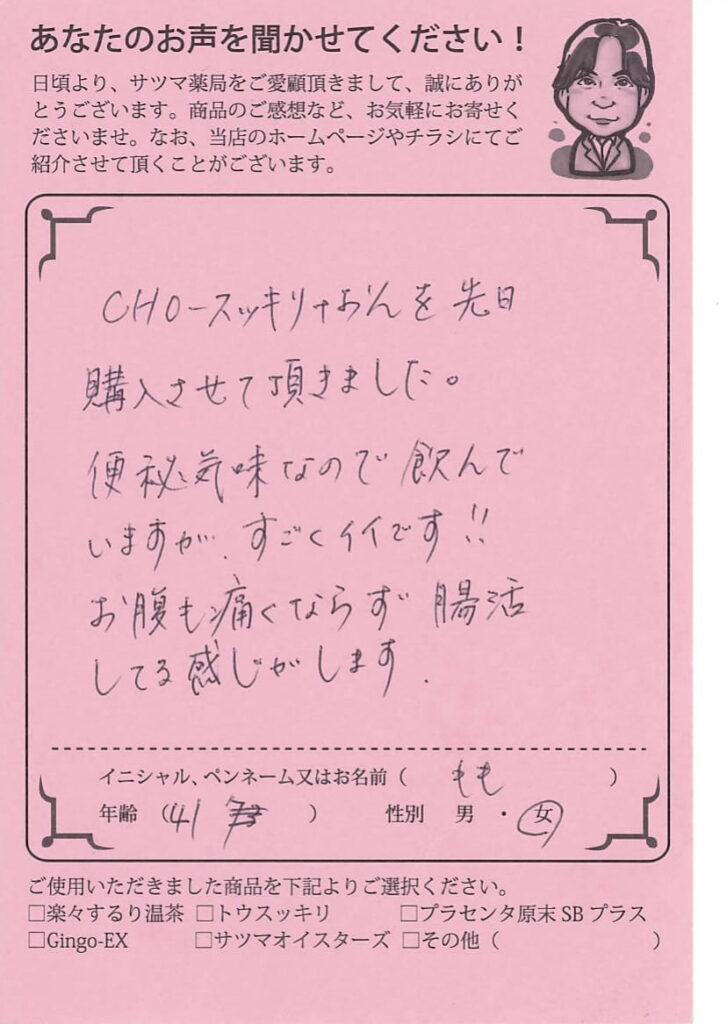 あなたのお声を聞かせてください！
日頃より、サツマ薬局をご愛顧頂きまして、誠にありが
とうございます。商品のご感想など、お気軽にお寄せく
ださいませ。なお、当店のホームページやチラシにてご
紹介させて頂くことがございます。
CHOースッキリ+おんを先日
購入させて頂きました。
便秘気味なので飲んで
いますが、すごくイイです!!
お腹も痛くならず腸活
してる感じがします.
イニシャル、ペンネーム又はお名前（ もも ）
年齢 （41 ） 性別 男 ・ 女
ご使用いただきました商品を下記よりご選択ください。
□楽々するり温茶 □トウスッキリ □プラセンタ原末 SB プラス
□Gingo-EX □サツマオイスターズ □その他（ ）